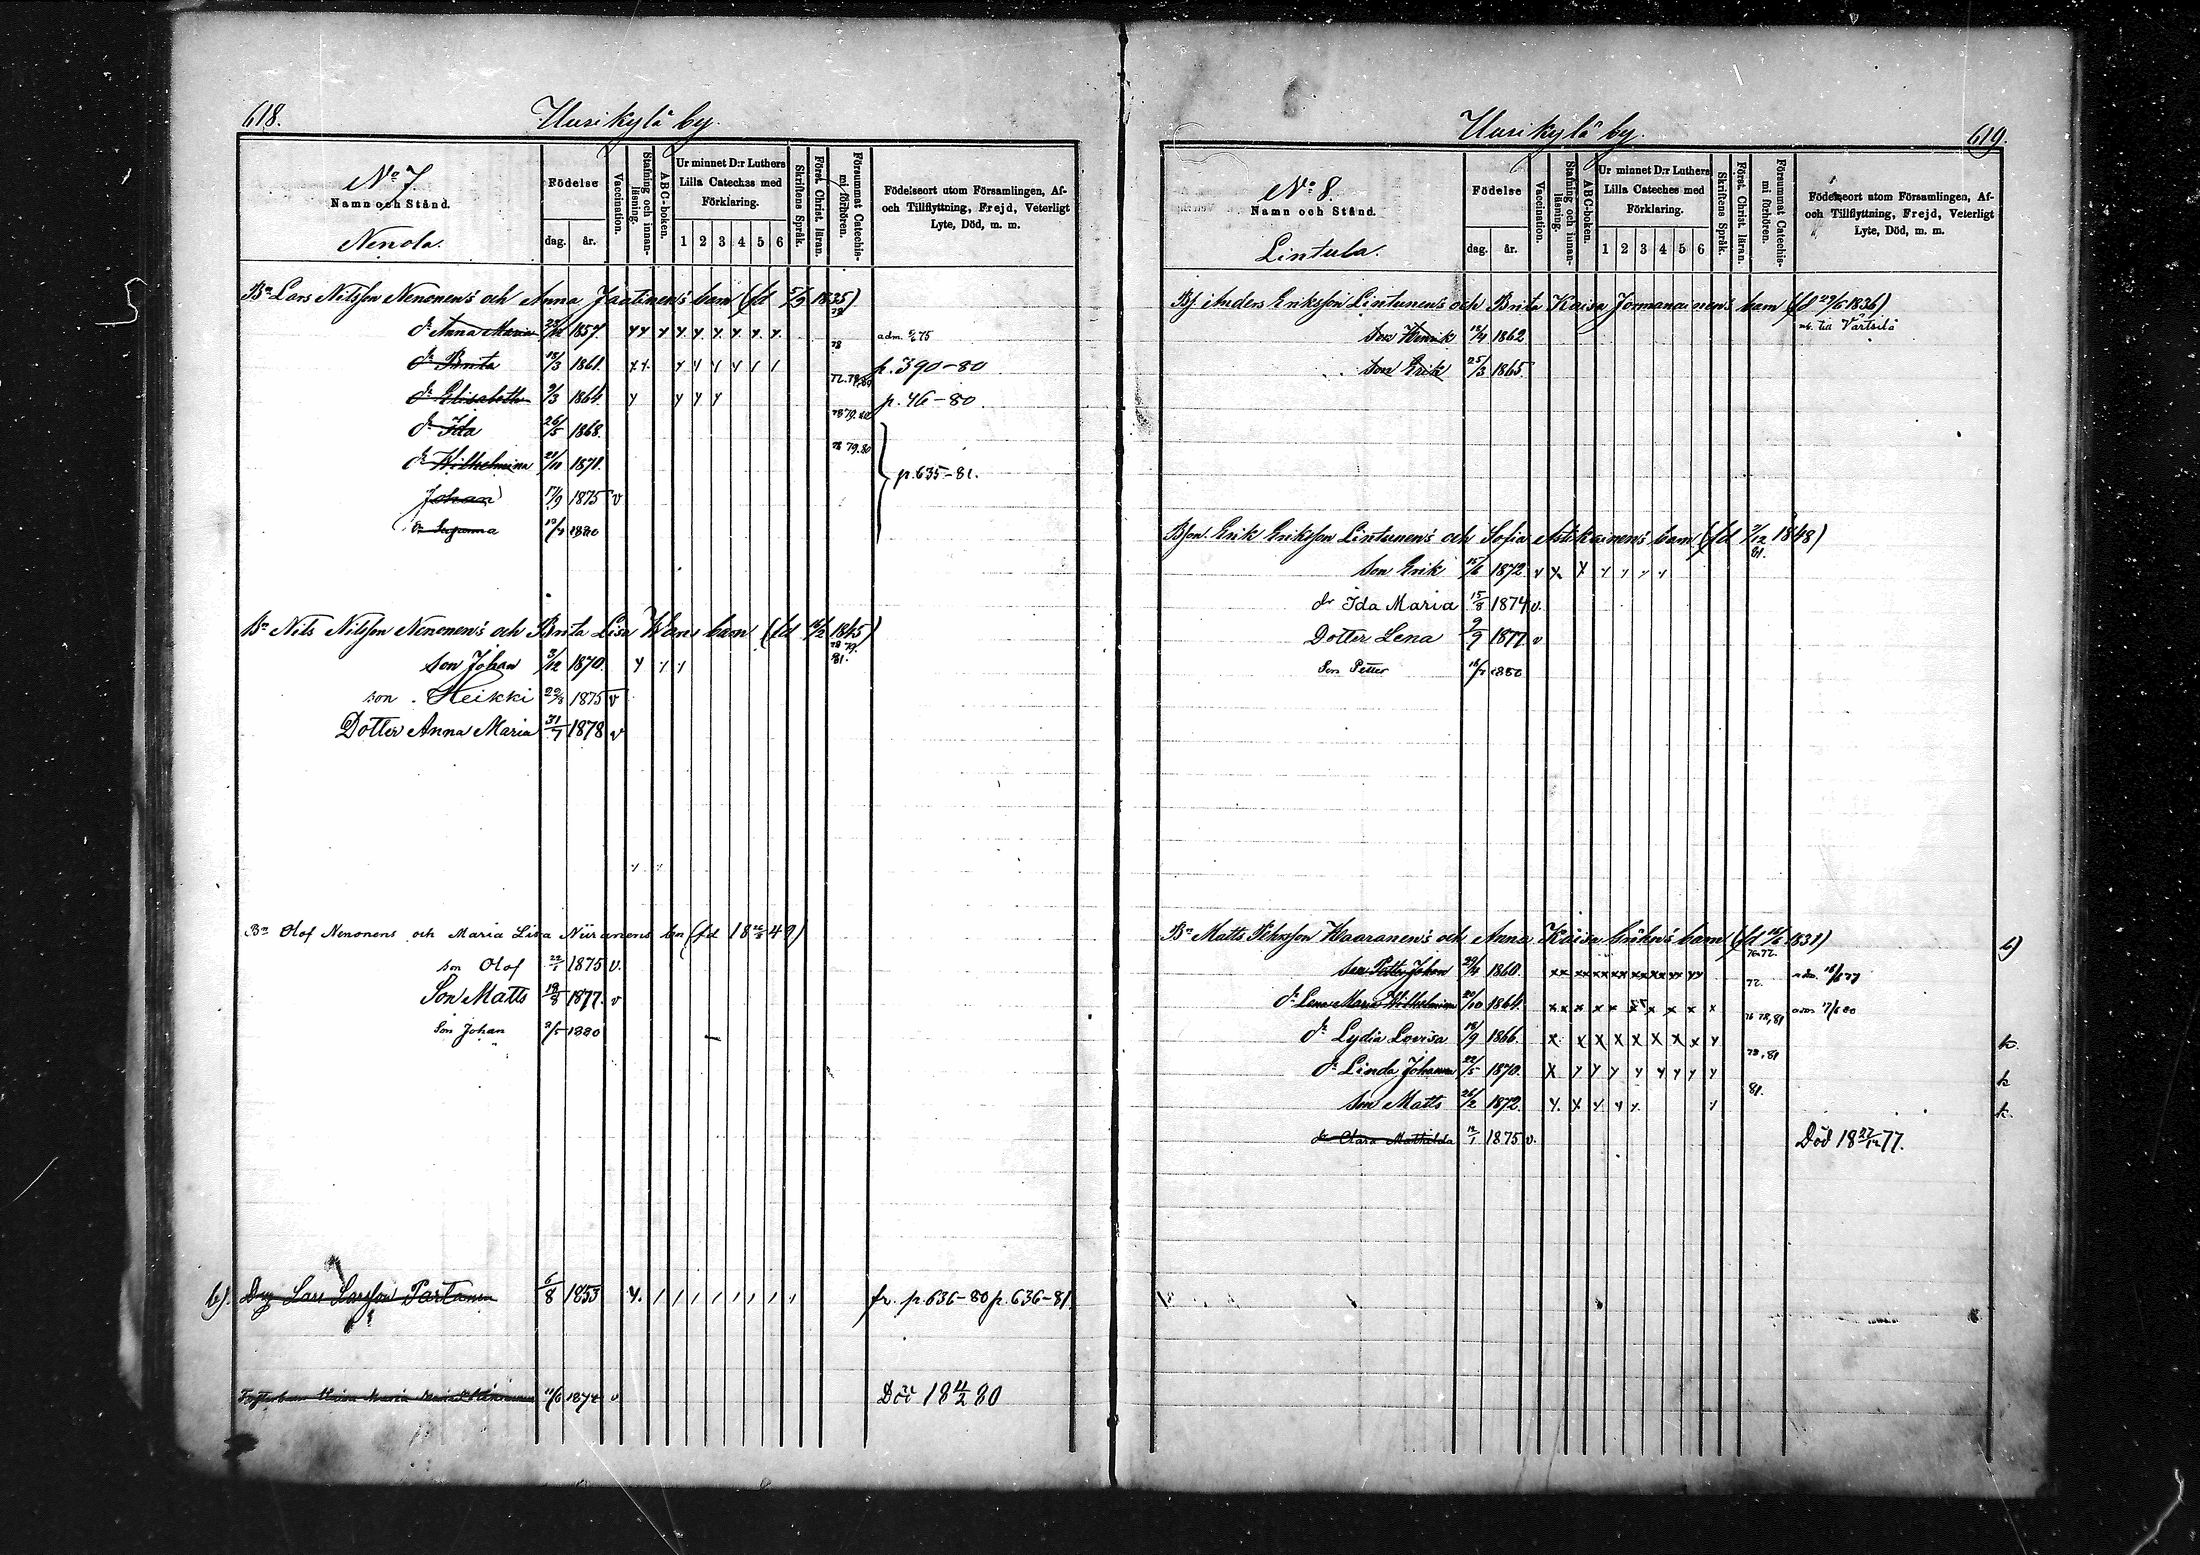 618.
Uusikylä by.
No 7.
Namn och Stånd.
Nenola.
Födelse
dag.
år.
Vaccination.
Stafning och innanläsning.
ABC-boken.
Ur minnet D:r Luthers Lilla Cateches med Förklaring.
1 2 3 4 5 6
Skriftens Språk.
Först. Christ. läran.
Försummat Catechismi förhören.
Födelseort utom Församlingen, Af- och Tillflyttning, Frejd, Veterligt Lyte, Död, m. m.
Bn Lars Nilsson Nenonen's och Anna Jaatinen's barn (fd 5/9 1835)
78
dr Anna Maria 1857. y y y y y y y y
78 adm. 75
dr Brita 18/3 1861. p. 390-80
dr Elisabeth 3/3 1864. y y y y
p. 46-80
dr Ida 26/5 1868.
78 79. 80
dr Wilhelmina 21/10 1871.
78 79. 80
p. 635-81.
Johan 17/9 1875 v
dr Susanna 1880
Bn Nils Nilsson Nenonen's och Brita Lisa barn (fd 1845)
78 79. 81.
son Johan 3/12 1870.
son Heikki 1875 v
Dotter Anna Maria 31/7 1878 v
Bn Olof Nenonens och Maria Lisa Niiranens bn (fd 49)
son Olof 1875 v.
Son Matts 19/8 1877. v
Son Johan 1880
b). Lars Larsson Partanen 6/8 1853 fr. p. 636-80 p. 636-81
Maria 1874 v Död 18 4/2 80
Uusikylä by.
619.
No 8.
Namn och Stånd.
Lintula.
Födelse
dag.
år.
Vaccination.
Stafning och innanläsning.
ABC-boken.
Ur minnet D:r Luthers Lilla Cateches med Förklaring.
1 2 3 4 5 6
Skriftens Språk.
Först. Christ. läran.
Försummat Catechismi förhören.
Födelseort utom Församlingen, Af- och Tillflyttning, Frejd, Veterligt Lyte, Död, m. m.
Anders Eriksson Lintunen's och Brita Kaisa barn (fd 29/6 1836)
son Henrik 12/4 1862 till Värtsilä
son Erik 25/3 1865.
Bson Erik Eriksson Lintunen's och Sofia Asikainen's barn (fd 7/12 1848)
81.
son Erik 15/6 1872
dr Ida Maria 15/8 1874 v.
Dotter Lena 9/9 1877 v
Son Petter 1880
Bn Matts Pehrsson Haaranen's och Anna Kaisa barn (fd 1831)
b)
son Petter Johan 29/4 1860.
dr Lena Maria Wilhelmina 20/10 1864.
77.
dr Lydia Lovisa 18/9 1866.
76 78, 81
k.
dr Linda Johanna 22/5 1870.
78, 81
k
son Matts 26/2 1872.
81.
k.
dr Clara Mathilda 12/1 1875 v. Död 18 27/12 77.